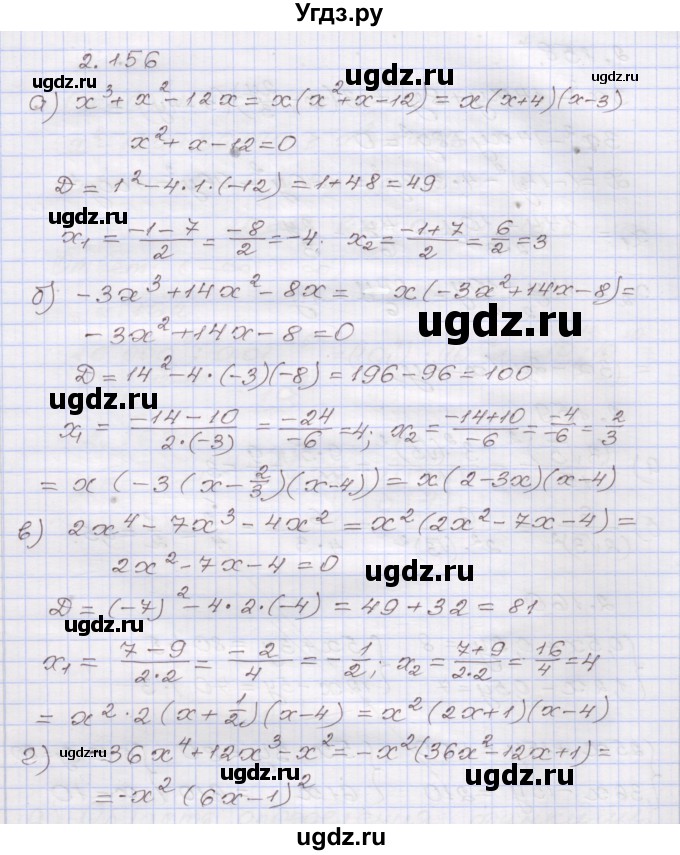 Угдз.ру
2.156
ugdz.ru ugdz.ru ugdz.ru
а) x³ + x² - 12x = x(x² + x - 12) = x(x+4)(x-3)
x² + x - 12 = 0
Д = 1² - 4·1·(-12) = 1 + 48 = 49
ugdz.ru
x₁ = (-1-7)/2 = -8/2 = -4. x₂ = (-1+7)/2 = 6/2 = 3
б) -3x³ + 14x² - 8x = x(-3x² + 14x - 8) =
ugdz.ru
-3x² + 14x - 8 = 0
ugdz.ru
Д = 14² - 4·(-3)(-8) = 196 - 96 = 100
x₁ = (-14-10)/(2·(-3)) = -24/-6 = 4; x₂ = (-14+10)/-6 = -4/-6 = 2/3
ugdz.ru
= x(-3(x - 2/3)(x-4)) = x(2-3x)(x-4)
в) 2x⁴ - 7x³ - 4x² = x²(2x² - 7x - 4) =
2x² - 7x - 4 = 0
ugdz.ru
Д = (-7)² - 4·2·(-4) = 49 + 32 = 81
ugdz.ru
x₁ = (7-9)/(2·2) = -2/4 = -1/2; x₂ = (7+9)/(2·2) = 16/4 = 4
= x²·2(x + 1/2)(x-4) = x²(2x+1)(x-4)
г) -36x⁴ + 12x³ - x² = -x²(36x² - 12x + 1) =
ugdz.ru ugdz.ru
= -x²(6x-1)²
ugdz.ru